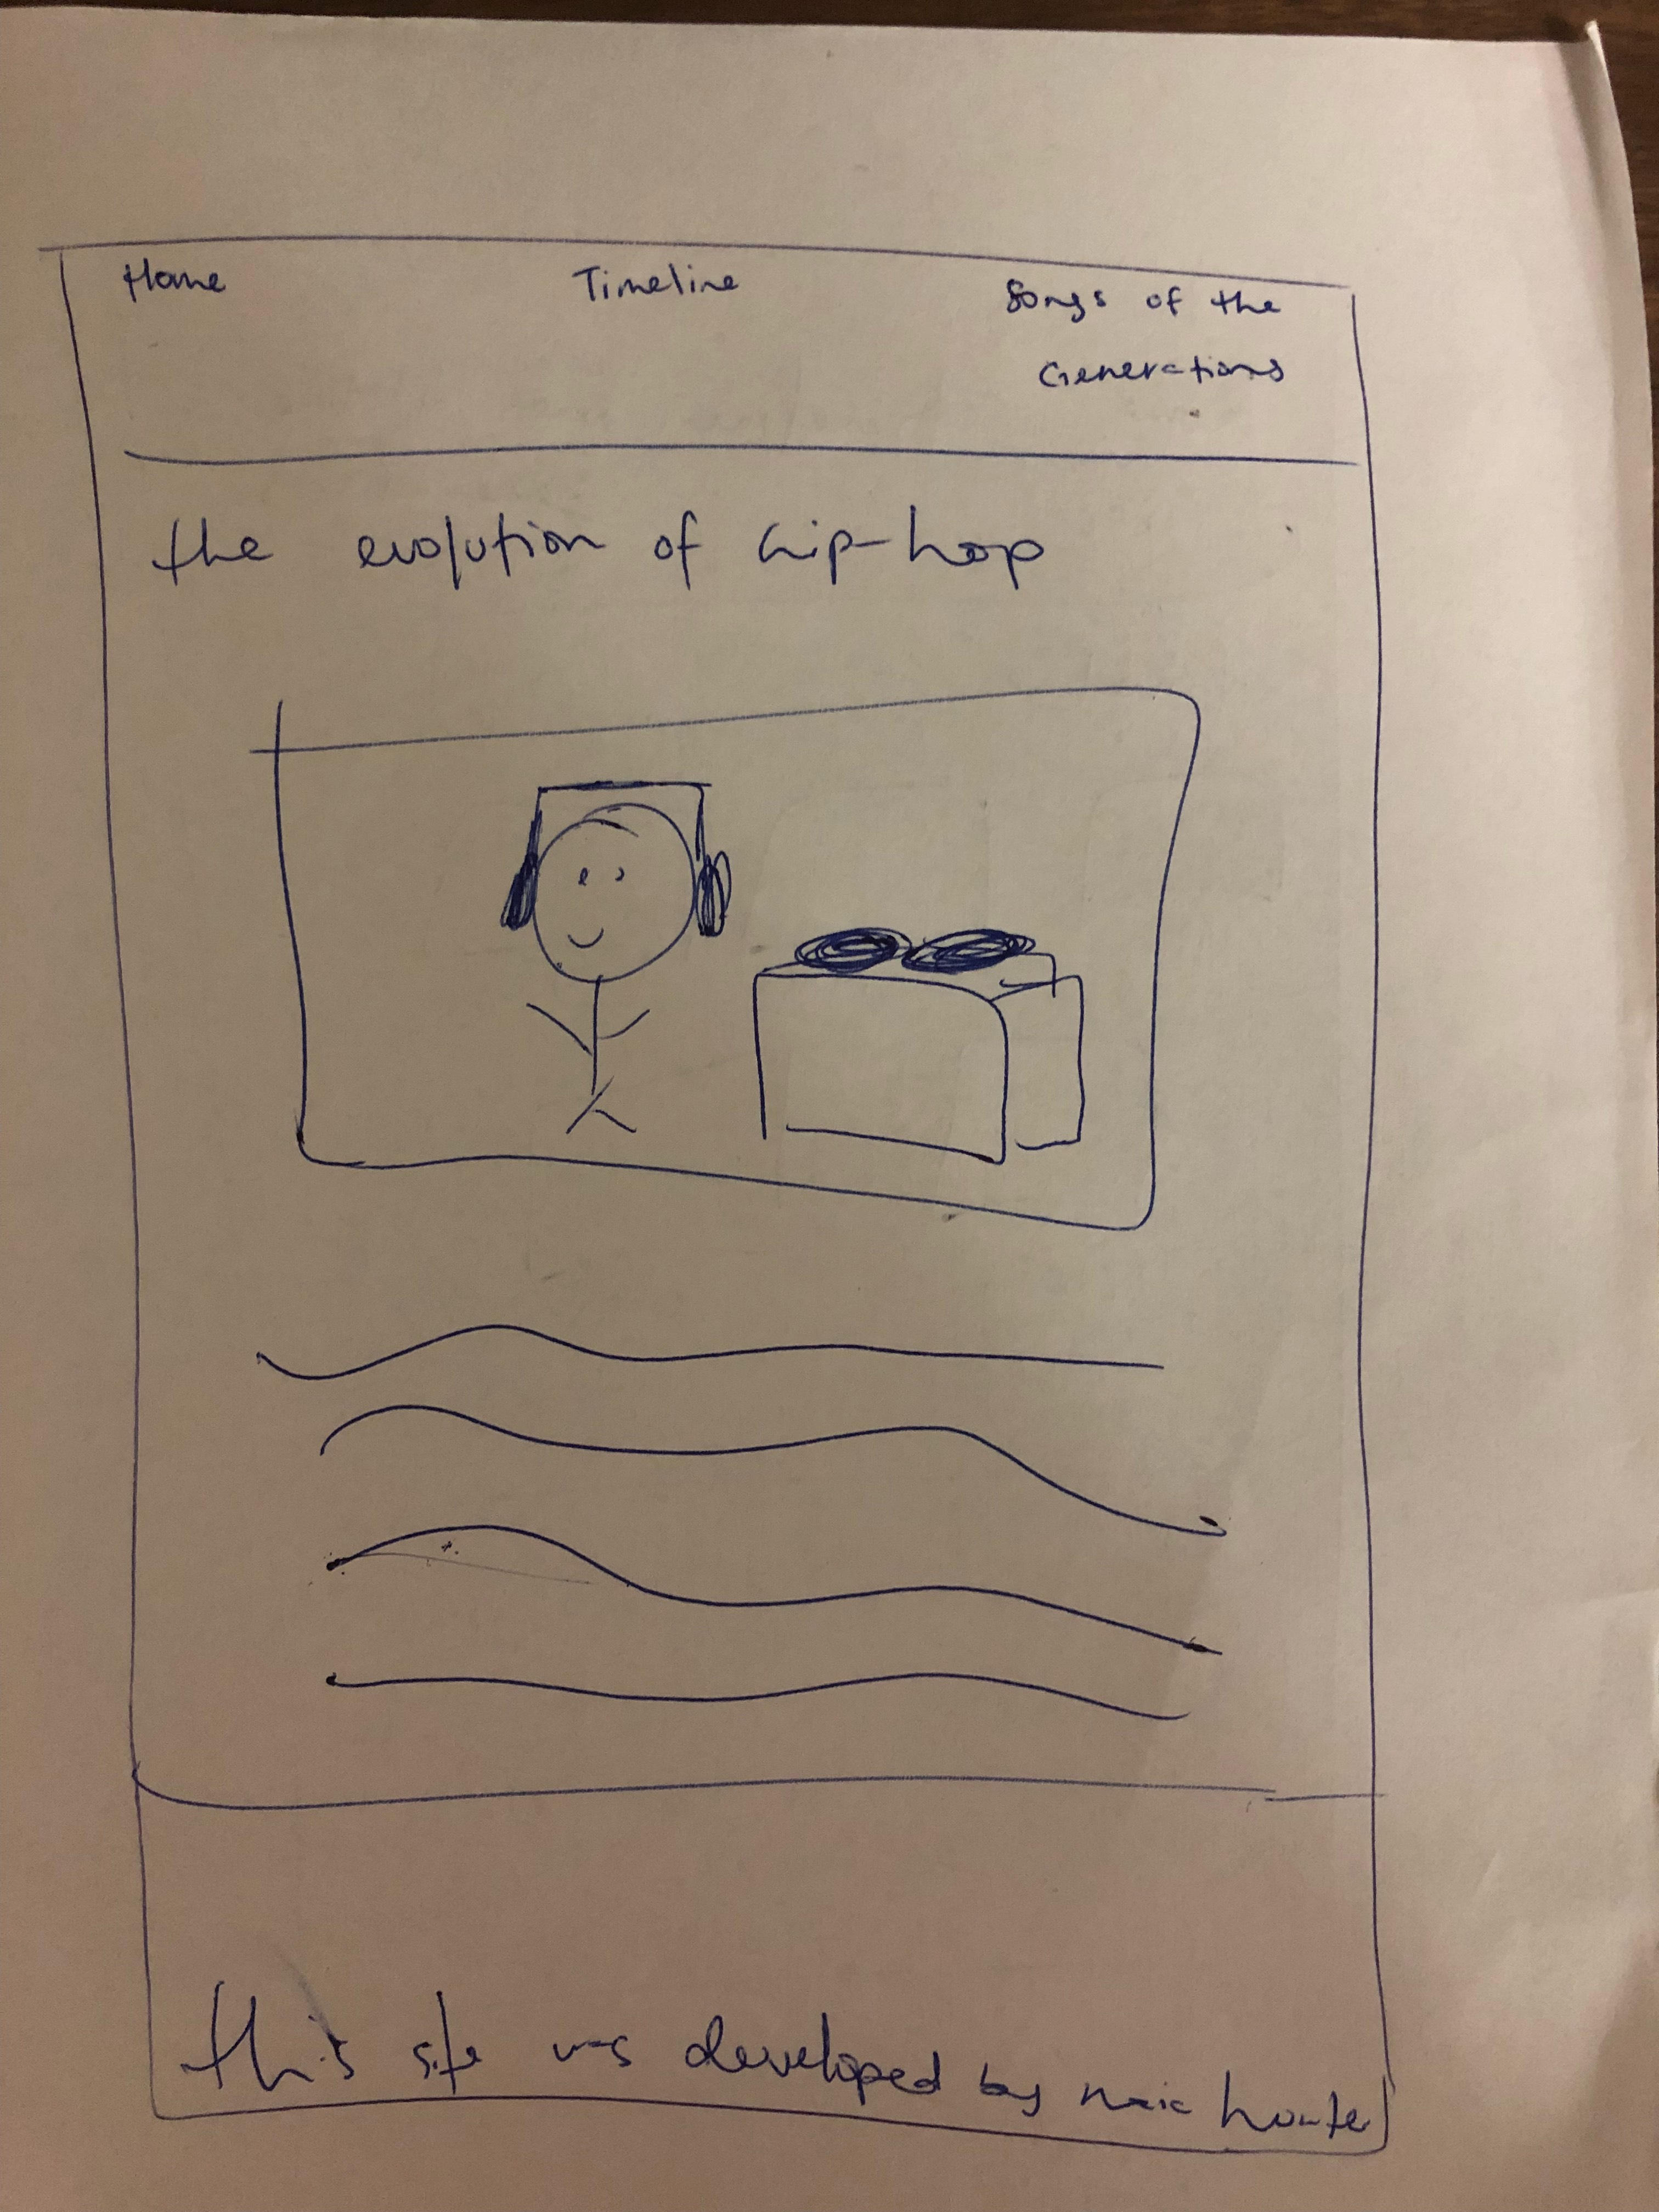 Home Timeline Songs of the
Generations
the evolution of hip-hop
this site was developed by